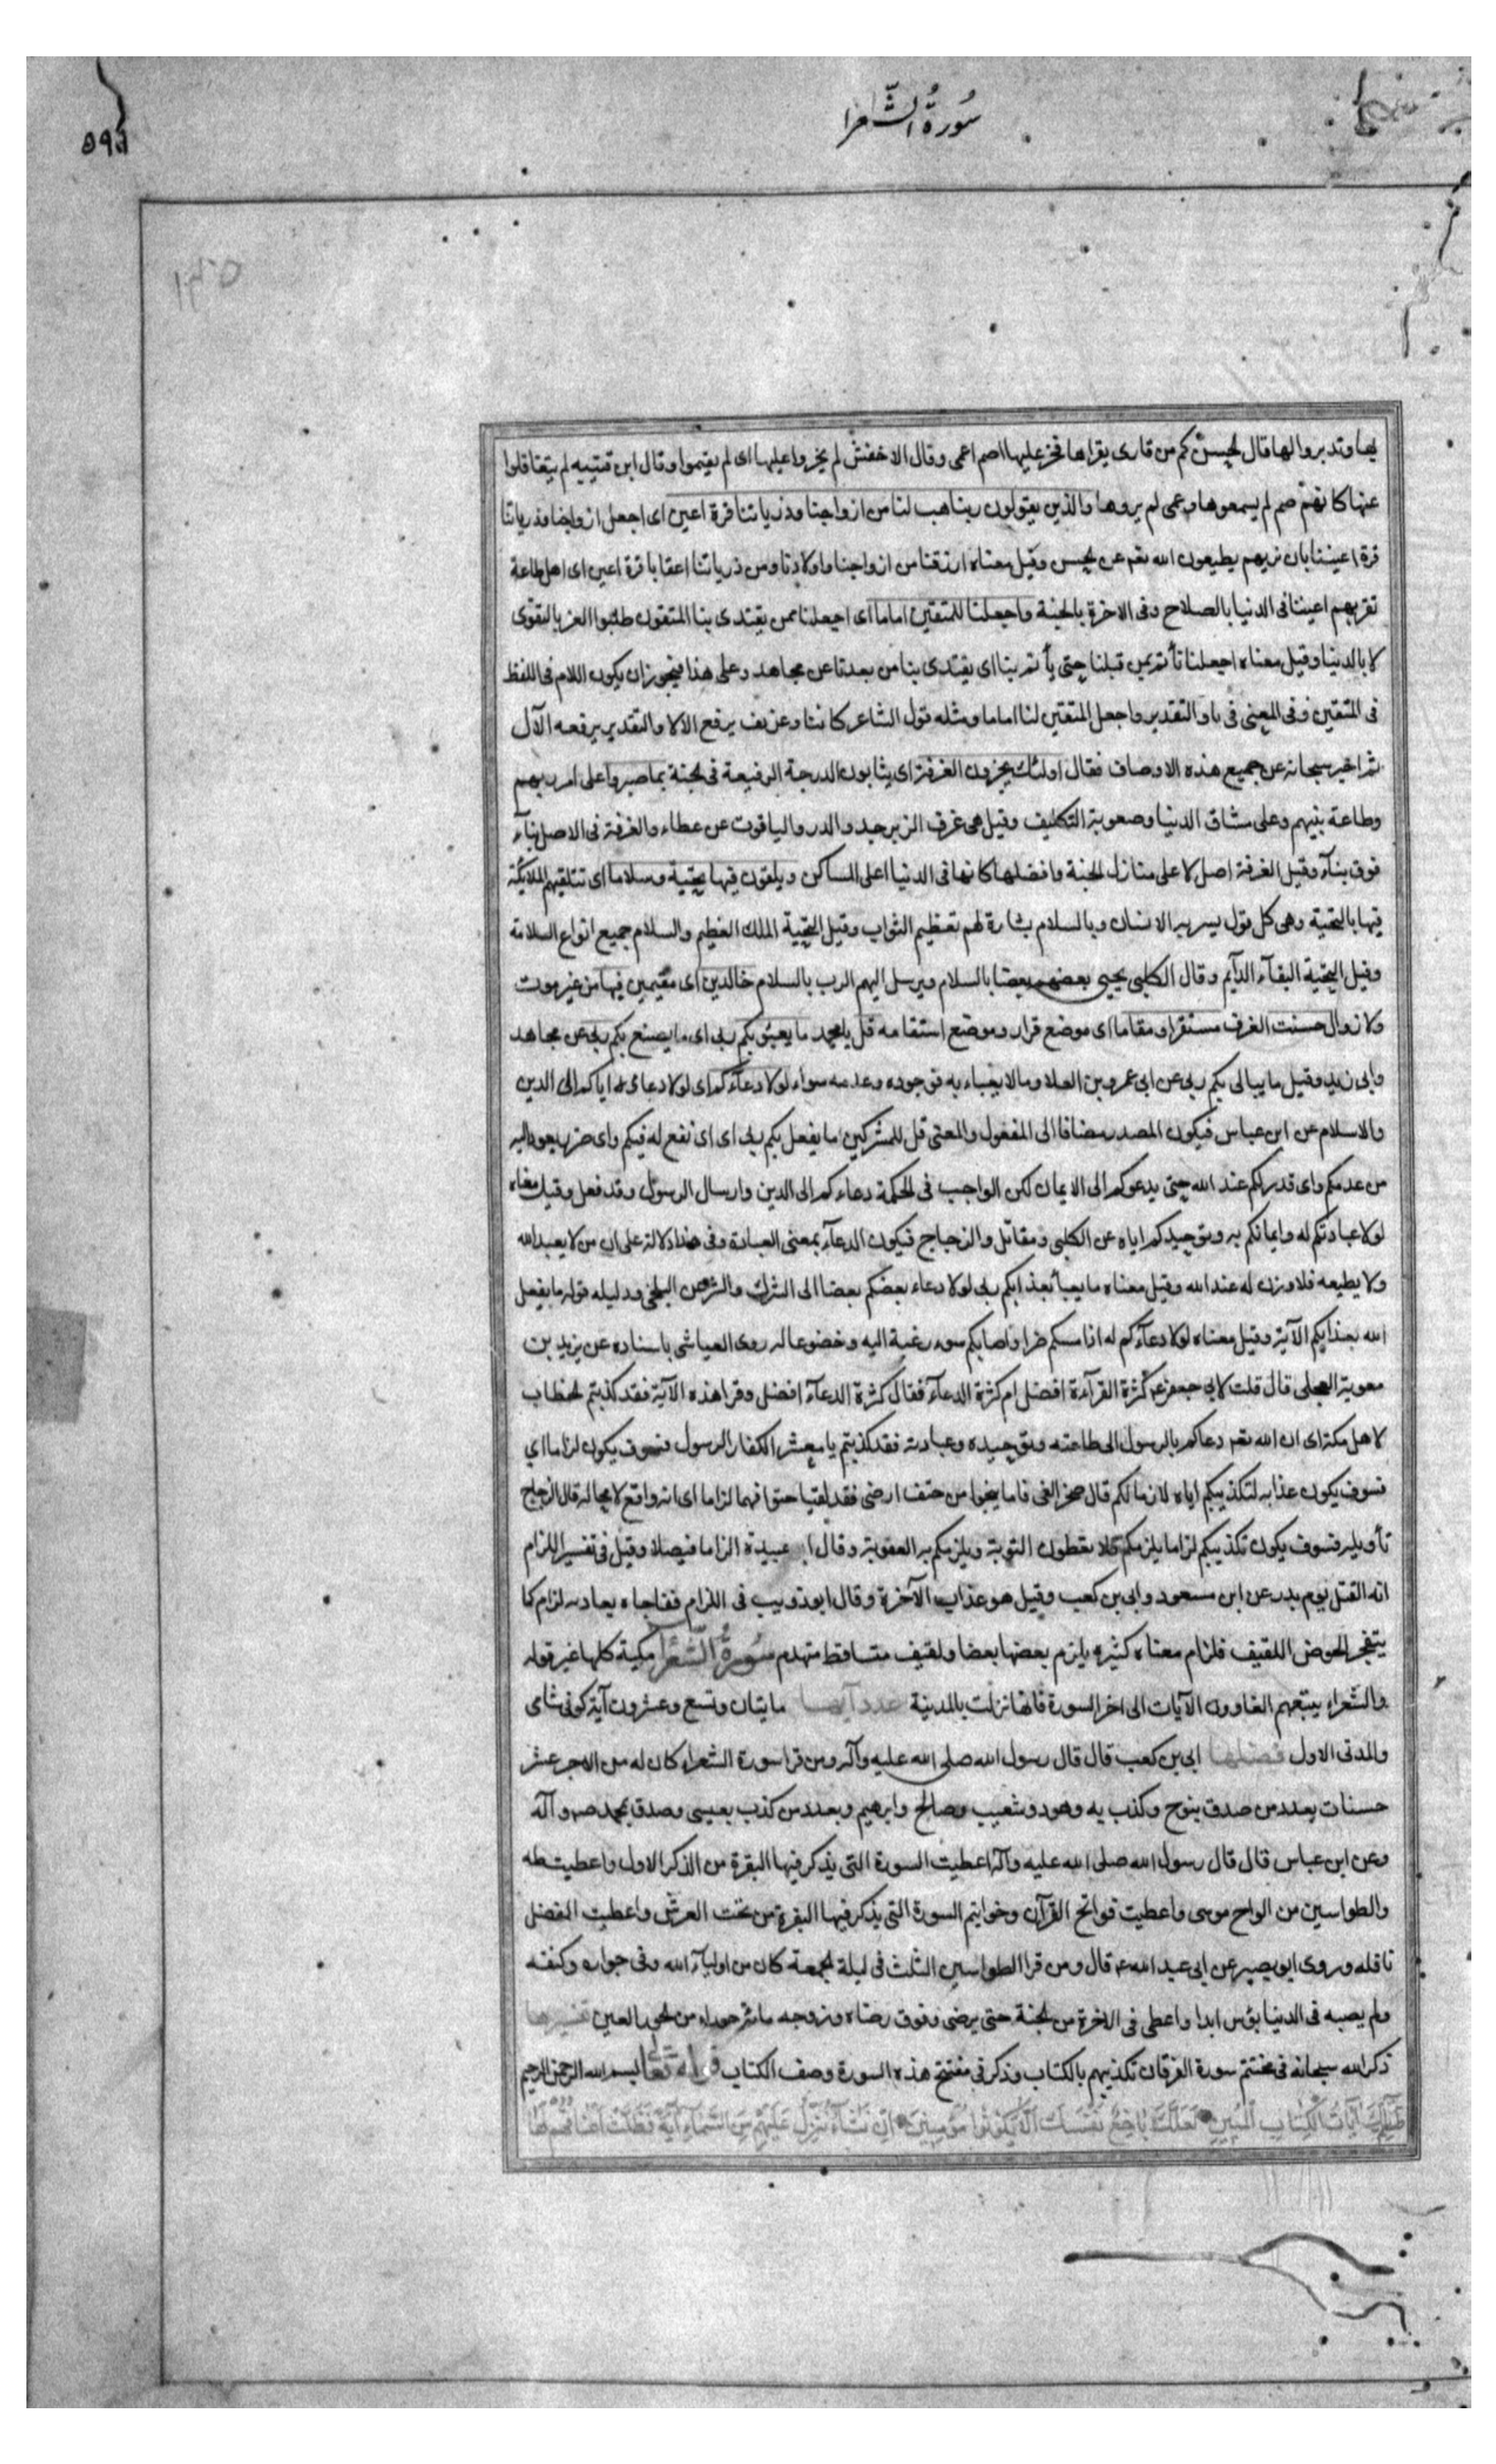 سُورَةُ الشّعرا
فيها وتدبروا لها قال الحسن كم من قارى يقراها فخر عليها اصم اعمى وقال الاخفش لم يخروا عليها اى لم يقيموا وقال ابن قتيبه لم يتغافلوا
عنها كانهم صم لم يسمعوها وعمى لم يروها والذين يقولون ربنا هب لنا من ازواجنا وذرياتنا قرة اعين اى اجعل ازواجنا وذرياتنا
قرة اعيننا بان نريهم يطيعون الله تعم عن الحسن وقيل معناه ارزقنا من ازواجنا واولادنا ومن ذرياتنا اعقابا قرة اعين اى اهل طاعة
تقر بهم اعيننا فى الدنيا بالصلاح وفى الاخرة بالجنة واجعلنا للمتقين اماما اى اجعلنا ممن يقتدى بنا المتقون طلبوا العز بالتقوى
لا بالدنيا وقيل معناه اجعلنا نأتم بمن قبلنا حتى يأتم بنا اى يقتدى بنا من بعدنا عن مجاهد وعلى هذا فيجوز ان يكون اللام فى اللفظ
فى المتقين وفى المعنى فى نا والتقدير واجعل المتقين لنا اماما ومثله قول الشاعر كاننا رعن قف يرفع الالا والتقدير يرفعه الآل
ثم اخبر سبحانه عن جميع هذه الاوصاف فقال اولئك يجزون الغرفة اى يثابون الدرجة الرفيعة فى الجنة بما صبروا على امر ربهم
وطاعة نبيهم وعلى مشاق الدنيا وصعوبة التكليف وقيل هى غرف الزبرجد والدر والياقوت عن عطاء والغرفة فى الاصل بناء
فوق بنآء وقيل الغرفة اصل لاعلى منازل الجنة وافضلها كانها فى الدنيا اعلى المساكن ويلقون فيها تحية وسلاما اى تتلقيهم الملائكة
فيها بالتحية وهى كل قول يسر به الانسان وبالسلام بشارة لهم تعظيم الثواب وقيل التحية الملك العظيم والسلام جميع انواع السلامة
وقيل التحية البقآء الدآيم وقال الكلبى يحيى بعضهم بعضا بالسلام ويرسل اليهم الرب بالسلام خالدين اى مقيمين فيها من غير موت
ولا زوال حسنت الغرف مستقرا ومقاما اى موضع قرار وموضع استقامه قل يا محمد ما يعبؤ بكم ربى اى ما يصنع بكم ربى عن مجاهد
وابى زيد وقيل ما يبالى بكم ربى عن ابى عمرو بن العلا وما لا يعباء به فوجوده وعدمه سواء لولا دعآؤكم اى لولا دعاى ه اياكم الى الدين
والاسلام عن ابن عباس فيكون المصدر مضافا الى المفعول والمعنى قل للمشركين ما يفعل بكم ربى اى اى نفع له فيكم واى ضر يعود اليه
من عدمكم واى قدر لكم عند الله حتى يدعوكم الى الايمان لكن الواجب فى الحكمة دعاءكم الى الدين وارسال الرسول وقد فعل وقيل معناه
لولا عبادتكم له وايمانكم به وتوحيدكم اياه عن الكلبى ومقاتل والزجاج فيكون الدعآء بمعنى العبادة وفى هذا دلالة على ان من لا يعبد الله
ولا يطيعه فلا وزن له عند الله وقيل معناه ما يعبأ بعذابكم ربى لولا دعاء بعضكم بعضا الى الشرك والشر عن البلخى ودليله قوله ما يفعل
الله بعذابكم الآية وقيل معناه لولا دعآؤكم له اذا مسكم ضر او اصابكم سوء رغبة اليه وخضوعا له روى العياشى باسناده عن يزيد بن
معوية العجلى قال قلت لابى جعفر ع كثرة القرآءة افضل ام كثرة الدعآء فقال كثرة الدعآء افضل وقرا هذه الآية فقد كذبتم الخطاب
لاهل مكة اى ان الله تعم دعاكم بالرسول الى طاعته وتوحيده وعبادته فقد كذبتم يا معشر الكفار الرسول فسوف يكون لزاما اي
فسوف يكون عذابه لتكذيبكم اياه لازما لكم قال صخر الغى فاما ينجوا من حتف ارضى فقد لقيا حتوفهما لزاما اى انه واقع لا محاله قال الزجاج
تأويله فسوف يكون تكذيبكم لزاما يلزمكم فلا تعطون التوبة ويلزمكم به العقوبة وقال ابو عبيدة الزاما فيصلا وقيل فى تفسير اللزام
انه القتل يوم بدر عن ابن مسعود وابى بن كعب وقيل هو عذاب الآخرة وقال ابو ذويب فى اللزام ففاجاه بعاديه لزام كما
يتفجر الحوض اللقيف فلزام معناه كثيره يلزم بعضها بعضا ولقيف متساقط متهدم سُورةُ الشّعرا مكية كلها غير قوله
والشعراء يتبعهم الغاوون الآيات الى اخر السورة فانها نزلت بالمدينة عدد آيها مايتان وتسع وعشرون آية كوفى شاى
والمدنى الاول فضلها ابى بن كعب قال قال رسول الله صلى الله عليه وآله ومن قرا سورة الشعراء كان له من الاجر عشر
حسنات بعدد من صدق بنوح وكذب به وهود وشعيب وصالح وابرهيم وبعدد من كذب بعيسى وصدق بمحمد ص وآله
وعن ابن عباس قال قال رسول الله صلى الله عليه وآله اعطيت السورة التى يذكر فيها البقرة من الذكر الاول واعطيت طه
والطواسين من الواح موسى واعطيت فواتح القرآن وخواتيم السورة التى يذكر فيها البقرة من تحت العرش واعطيت المفضل
نافله وروى ابو بصير عن ابى عبد الله ع قال ومن قرا الطواسين الثلث فى ليلة الجمعة كان من اوليآء الله وفى جواره وكنفه
ولم يصبه فى الدنيا بؤس ابدا واعطى فى الاخرة من الجنة حتى يرضى وفوق رضاه وزوجه مائة حوراء من الحور العين تفسيرها
ذكر الله سبحانه فى مختتم سورة الفرقان تكذيبهم بالكتاب وذكر فى مفتتح هذه السورة وصف الكتاب قوله تعالى بسم الله الرحمن الرحيم
طسم تِلْكَ آيَاتُ الْكِتَابِ الْمُبِينِ لَعَلَّكَ بَاخِعٌ نَفْسَكَ اَلَّا يَكُونُوا مُؤْمِنِينَ اِنْ نَشَأْ نُنَزِّلْ عَلَيْهِمْ مِنَ السَّمَاءِ آيَةً فَظَلَّتْ اَعْنَاقُهُمْ لَهَا